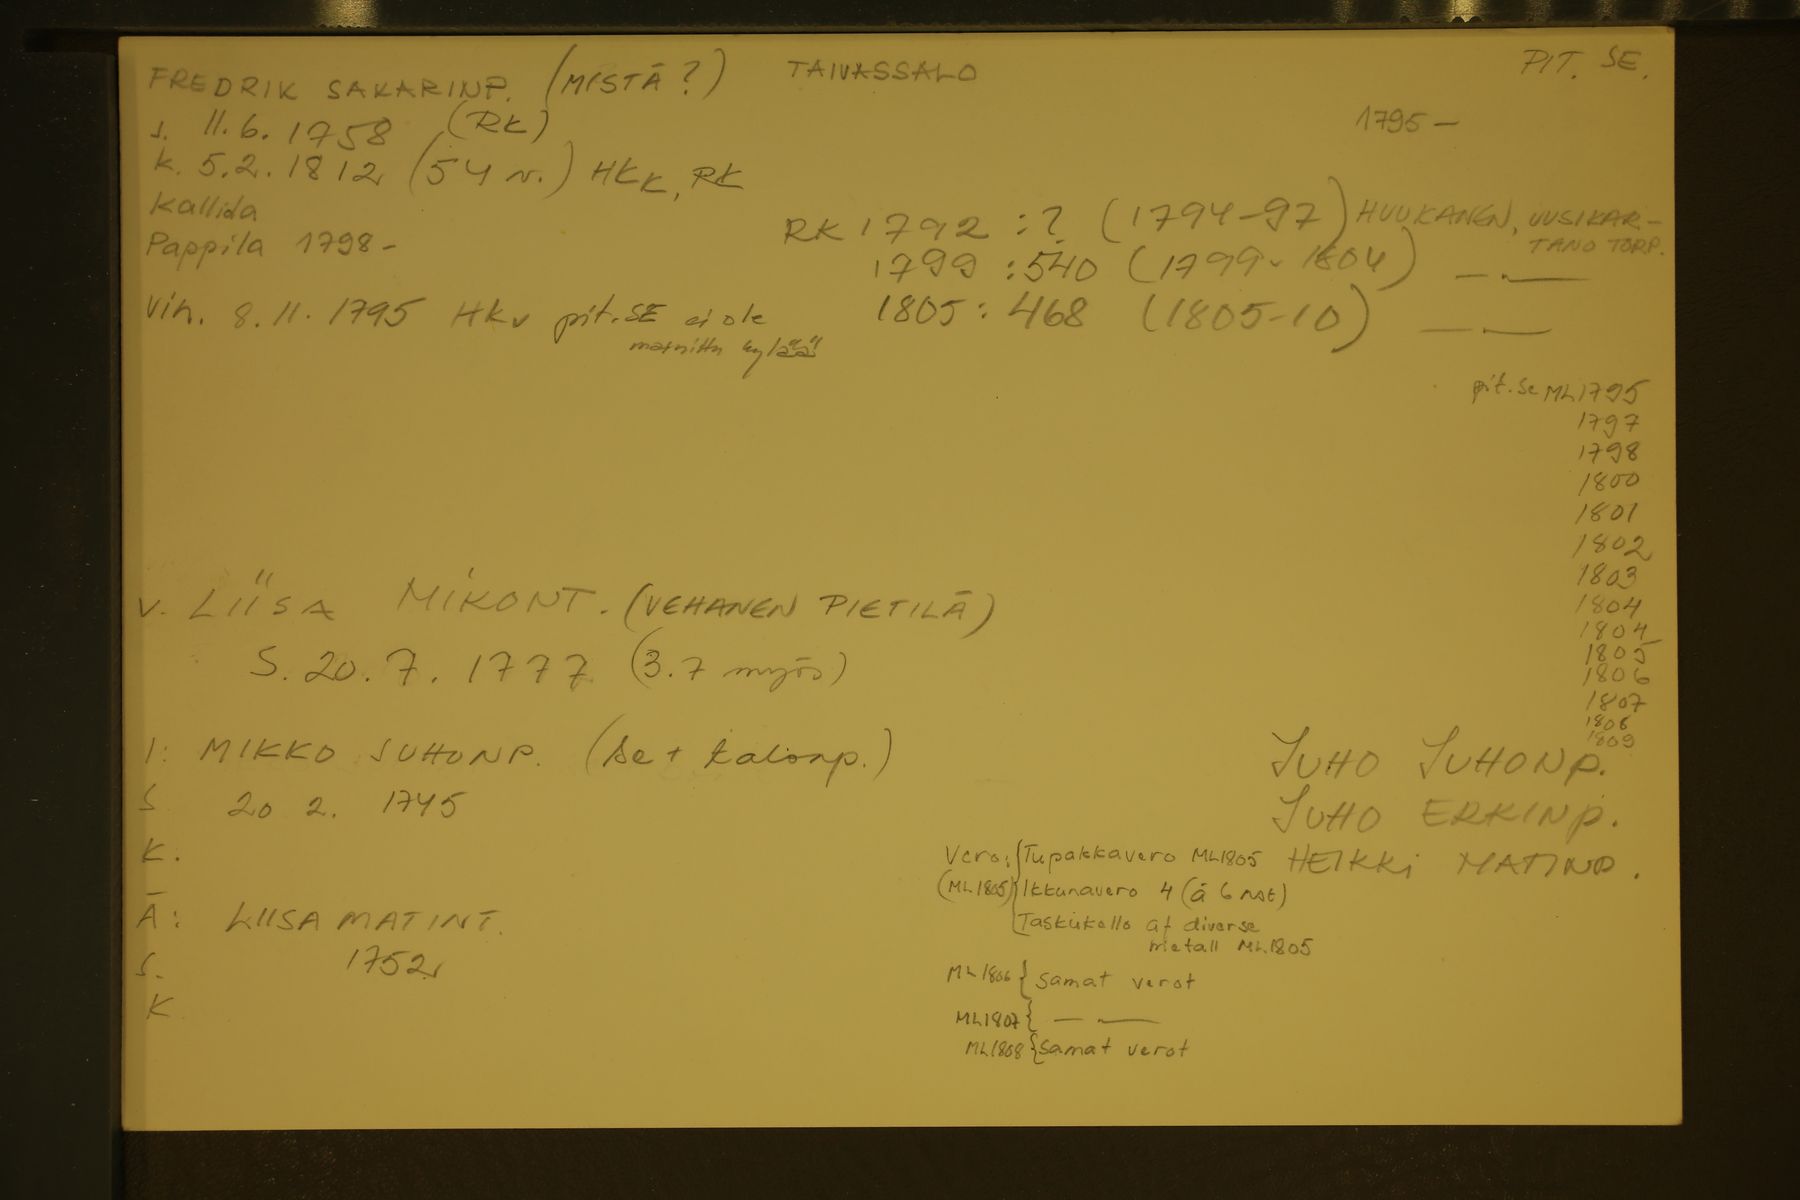 FREDRIK SAKARINP. (MISTÄ?) TAIVASSALO PIT. SE.
s. 11.6.1758 (RK) 1795-
k. 5.2.1812 (54 v.) HKK, RK
Kallida
RK 1792 :? (1794-97) HUUKANEN, UUSIKAR-
TANO TORP.
Pappila 1798-
1799 :540 (1799-1804) —.—
Vih. 8.11.1795 HKv pit.SE ei ole
mainittu kylää
1805: 468 (1805-10) —.—
pit.se ML1795
1797
1798
1800
1801
1802
1803
1804
1804
1805
1806
1807
1808
1809
V. LIISA MIKONT. (VEHANEN PIETILÄ)
S. 20.7.1777 (3.7 myös)
I: MIKKO JUHONP. (se + talonp.)
S 20 2. 1745
K.
Ä: LIISA MATINT.
S. 1752
K
JUHO JUHONP.
JUHO ERKINP.
HEIKKI MATINP.
Vero: {Tupakkavero ML1805
(ML1805) Ikkunavero 4 (á 6 rst)
Taskukello af diverse
metall ML1805
ML1806 { samat verot
ML1807 { —.—
ML1808 {samat verot